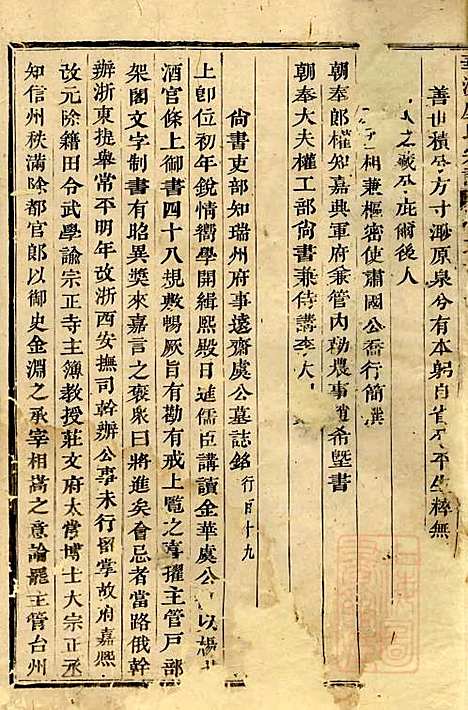 善世積兮方寸溯原泉兮有本躬自省兮平生粹無
之藏兮庇爾後人
相兼樞密使肅國公喬行簡撰
朝奉郎權知嘉興軍府兼管內勸農事趙希塈書
朝奉大夫權工部尚書兼侍講李大
尚書吏部知瑞州府事遠齋虞公墓誌銘行百十九
上卽位初年銳情嚮學開緝熙殿日進儒臣講讀金華虞公以楊
酒官條上御書四十八規敷暢厥旨有勸有戒上覽之喜擢主管戶部
架閣文字制書有昭異獎來嘉言之褒衆曰將進矣會忌者當路俄幹
辦浙東提舉常平明年改浙西安撫司幹辦公事未行留掌故府嘉熙
改元除籍田令武學諭宗正寺主簿教授莊文府太常博士大宗正丞
知信州秩滿除都官郎以御史金淵之承宰相嵩之意論罷主管台州